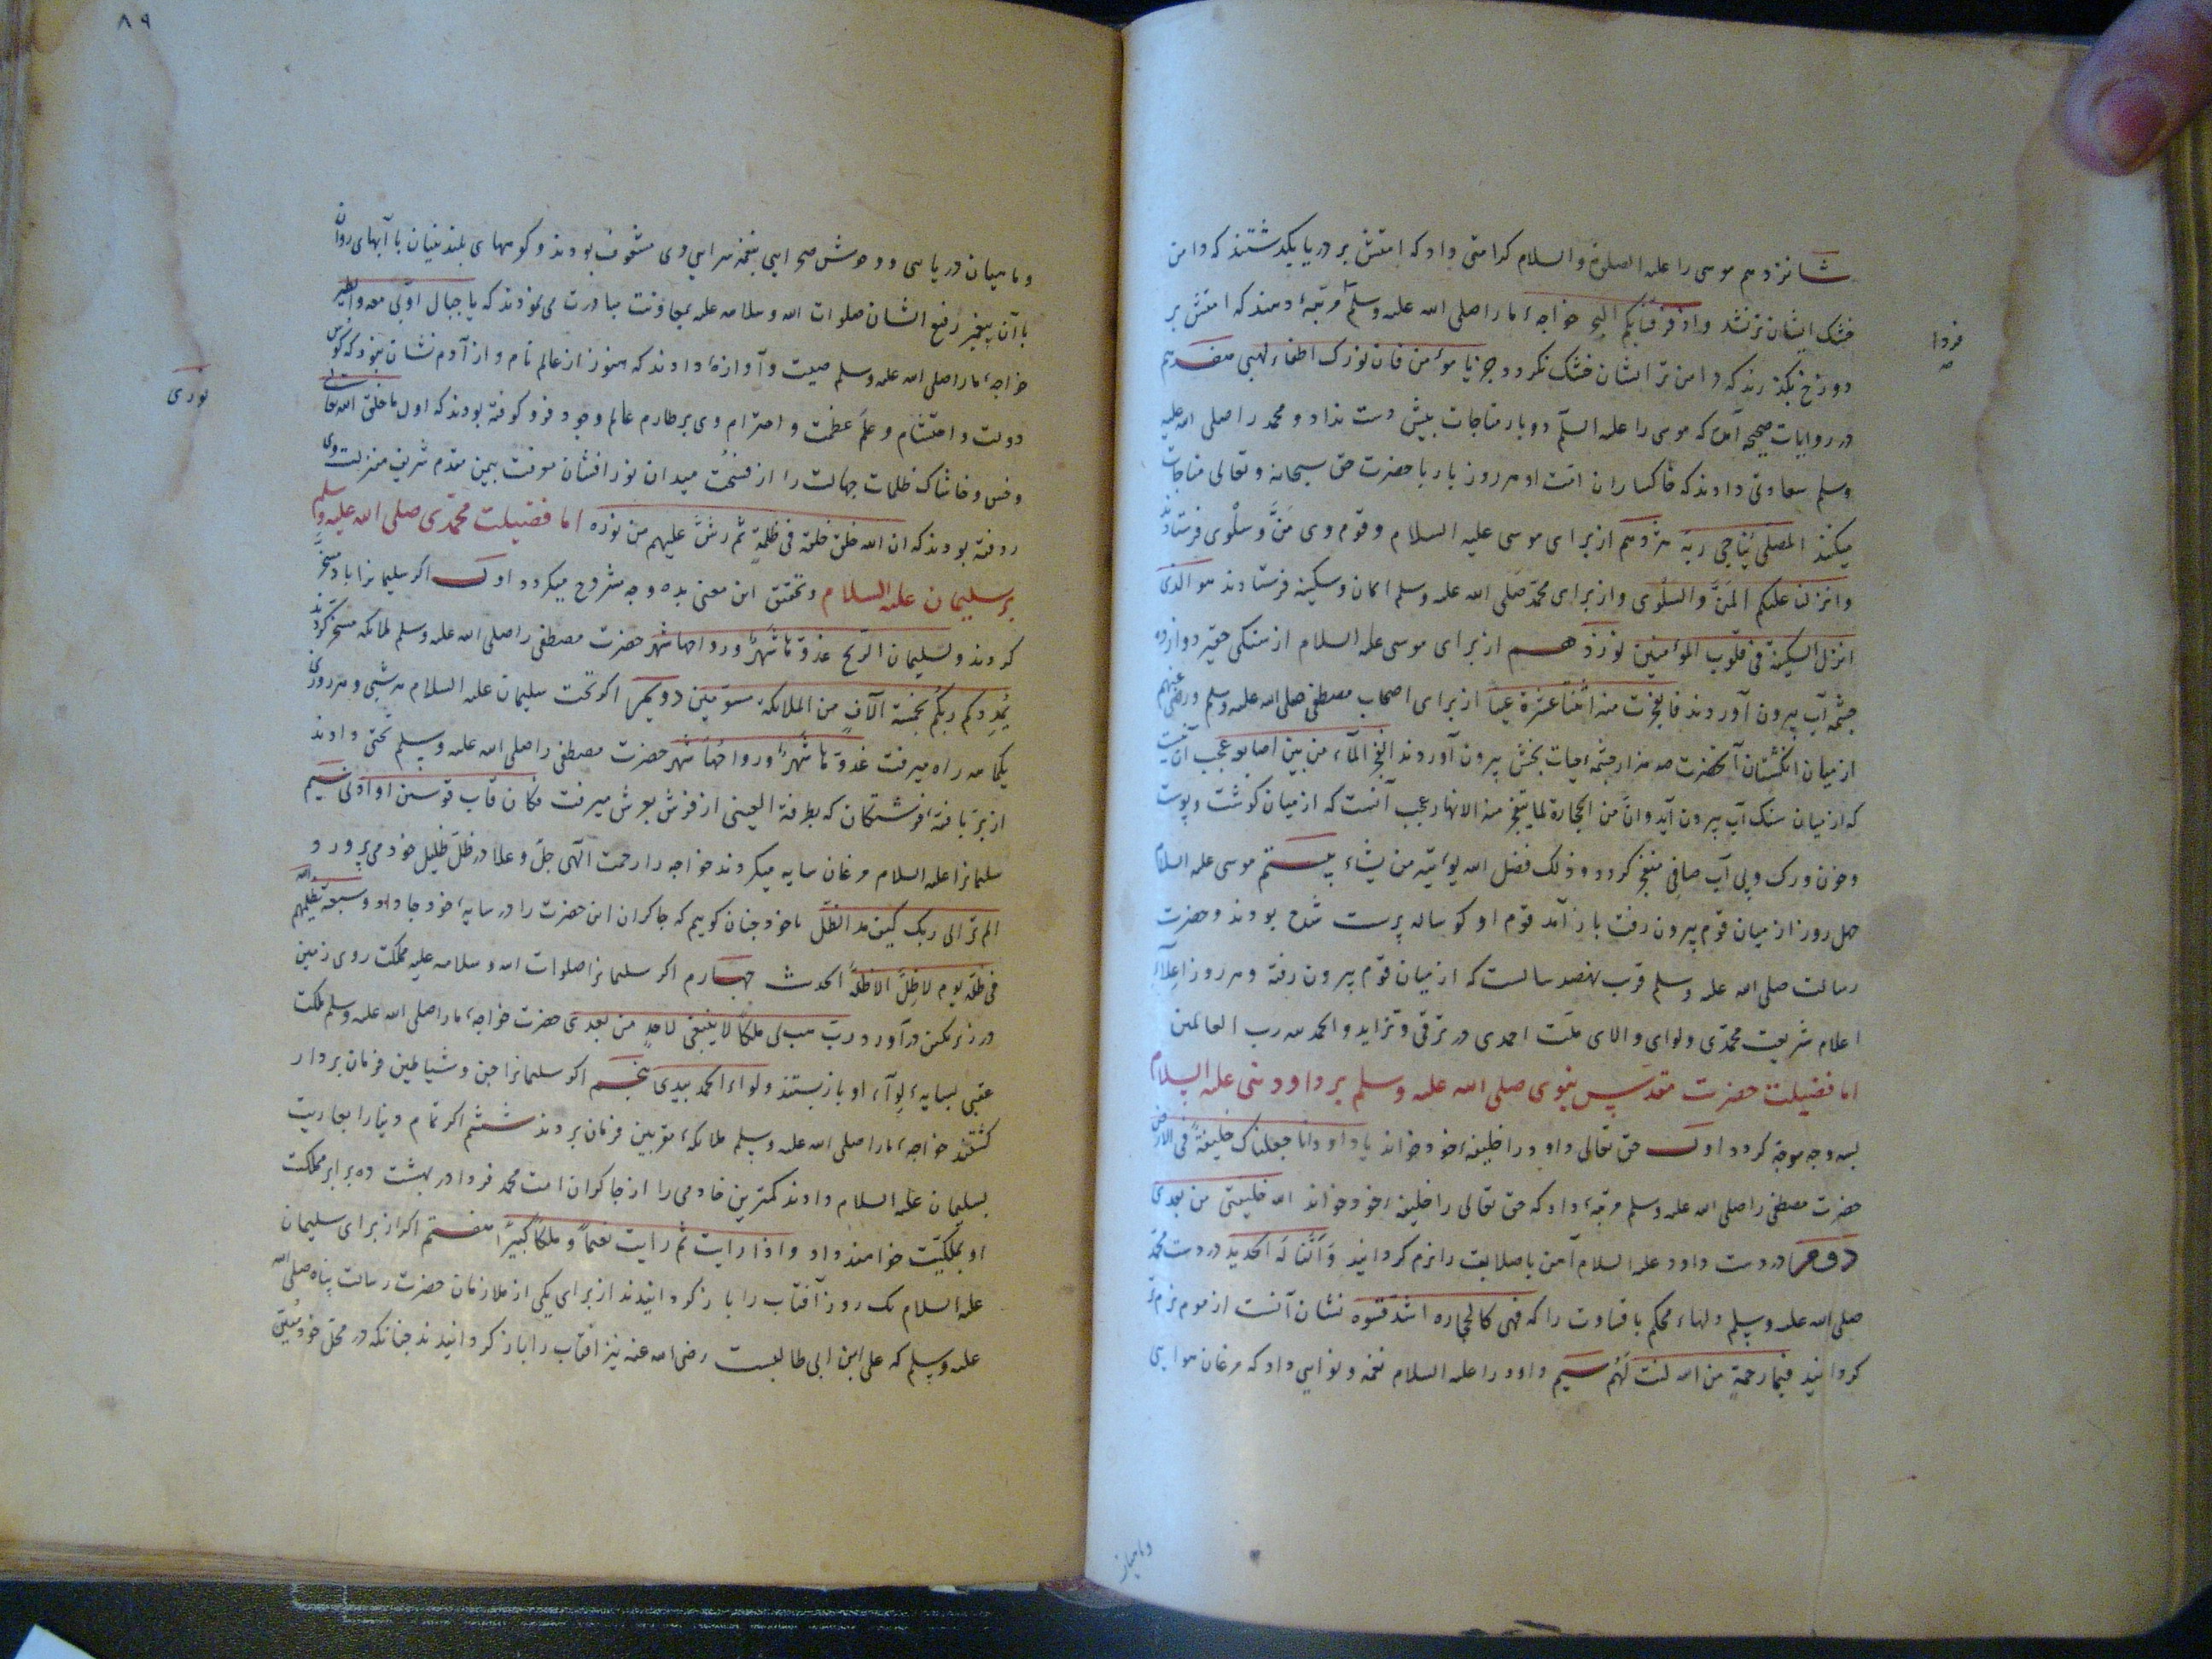 شانزدهم موسی را علیه الصلوة والسلام کرامتی داد که امتش بر دریا بگذشتند که دامن
خشک ایشان تر نشد واذ فرقنا بکم البحر خواجهٔ ما را صلی الله علیه وسلم مرتبهٔ دهند که امتش بر
دوزخ بگذرند که دامن تر ایشان خشک نکردد جز یا مؤمن فان نورک اطفاء لهبی هفدهم
در روایات صحیحه آمده که موسی را علیه السلم دو بار مناجات بیش دست نداد و محمد را صلی الله علیه
وسلم سعادتی دادند که خاکساران امت او هر روز بارها با حضرت حق سبحانه وتعالی مناجات
میکنند المصلی یناجی ربه هژدهم از برای موسی علیه السلام وقوم وی مَنَّ وسلْوی فرستادند
وانزلنا علیکم المَنَّ والسلْوی واز برای محمد صلی الله علیه وسلم امان وسکینه فرستادند هو الذی
انزل السکینة فی قلوب المؤمنین نوزدهم از برای موسی علیه السلام از سنکی حقیر دوازده
چشمه آب بیرون آوردند فانفجرت منه اثنتا عشرة عینا از برای اصحاب مصطفی صلی الله علیه وسلم ورضی عنهم
از میان انکشتان آنحضرت صد هزار چشمهٔ حیات بخش بیرون آوردند انفجر المآء من بین اصابعه عجب آن نیست
که از میان سنک آب بیرون آید وانَّ من الحجارة لما یتفجر منه الانهار عجب آنست که از میان کوشت وپوست
وخون ورک وپی آب صافی منفجر کردد وذلک فضل الله یؤتیه من یشاء بیستم موسی علیه السلام
چهل روز از میان قوم بیرون رفت باز آمد قوم او کوساله پرست شده بودند وحضرت
رسالت صلی الله علیه وسلم قرب نهصد سالست که از میان قوم بیرون رفته وهر روز اعلآء
اعلام شریعت محمدی ولوای والای ملت احمدی در ترقی وتزاید والحمد لله رب العالمین
اما فضیلت حضرت مقدس نبوی صلی الله علیه وسلم بر داود نبی علیه السلام
بسه وجه موجه کردد اول حق تعالی داود را خلیفهٔ خود خواند یا داود انا جعلناک خلیفةً فی الارض
حضرت مصطفی را صلی الله علیه وسلم مرتبهٔ داد که حق تعالی را خلیفهٔ خود خواند الله خلیفتی من بعدی
دوم در دست داود علیه السلام آهن باصلابت را نرم کردانید وَاَلَنَّا لَه الحدید در دست محمد
صلی الله علیه وسلم دلهاء محکم باقساوت را که فهی کالحجاره اشد قسوه نشان آنست از موم نرم تر
کردانید فبما رحمةٍ من الله لنت لَهُم سیم داود را علیه السلام نغمه ونوایی داد که مرغان هوایی
فردا
صح
وماهیان
۸۹
وماهیان دریایی ووحوش صحرایی بنغمه سرایی وی مشعوف بودند وکوههای بلند بنیان با آبهای روان
با آن پیغمبر رفیع الشان صلوات الله وسلامه علیه بمعاونت مبادرت می نمودند که یا جبال اوّبی معه والطیر
خواجهٔ ما را صلی الله علیه وسلم صیت وآوازهٔ دادند که هنوز از عالم نام واز آدم نشان نبود که کوس
دولت واحتشام وعلم عظمت واحترام وی بر طارم عالم وجود فرو کوفته بودند که اول ما خلق الله تعالی
نوری
وخس وخاشاک ظلمات جهالت را از فسْحت میدان نور افشان معرفت بیمن مقدم شریف منزلت وی
روفته بودند که ان الله خلق خلقه فی ظلمةٍ ثم رشَّ علیهم من نوره اما فضیلت محمدی صلی الله علیه وسلم
بر سلیمان علیه السلام وتحقیق این معنی بده وجه مشروح میکردد اول اکر سلیمانرا باد مسخّر
کردند ولسلیمان الریح غدوّها شهرٌ ورواحها شهر حضرت مصطفی را صلی الله علیه وسلم ملائکه مسخر کردند
یُمْدِدْکم ربکُم بخمسة آلافٍ من الملائکة مسوّمین دویم اکر تخت سلیمان علیه السلام هر شبی وهر روزی
یکماهه راه میرفت غدوّها شهرٌ ورواحها شهر حضرت مصطفی را صلی الله علیه وسلم تختی دادند
از پر بافتهٔ فرشتکان که بطرفة العینی از فرش بعرش میرفت فکان قاب قوسین او ادنی سیم
سلیمانرا علیه السلام مرغان سایه میکردند خواجه را رحمت الهی جلّ وعلا در ظلّ ظلیل خود می پرورد
الم تر الی ربک کیف مد الظلّ ما خود چنان کوییم که چاکران این حضرت را در سایهٔ خود جا داد وسبعة یظلهم الله
فی ظله یوم لا ظلَّ الا ظله الحدیث چهارم اکر سلیمانرا صلوات الله وسلامه علیه مملکت روی زمین
در زیر نکین درآورد رب هب لی ملکاً لا ینبغی لاحدٍ من بعدی حضرت خواجهٔ ما را صلی الله علیه وسلم ملکت
عقبی بسایهٔ لِوآء او بازبستند ولواء الحمد بیدی پنجم اکر سلیمانرا جن وشیاطین فرمان بردار
کشتند خواجهٔ ما را صلی الله علیه وسلم ملائکهٔ مقربین فرمان بردند ششم اکر تمام دنیا را بعاریت
بسلیمان علیه السلام دادند کمترین خادمی را از چاکران امت محمد فردا در بهشت ده برابر مملکت
او بملکیّت خواهند داد واذا رایت ثم رایت نعیماً وملکاً کبیراً هفتم اکر از برای سلیمان
علیه السلام یک روز آفتاب را باز کردانیدند از برای یکی از ملازمان حضرت رسالت پناه صلی الله
علیه وسلم که علی ابن ابی طالبست رضی الله عنه نیز آفتاب را باز کردانیدند چنانکه در محل خود مُعیّن